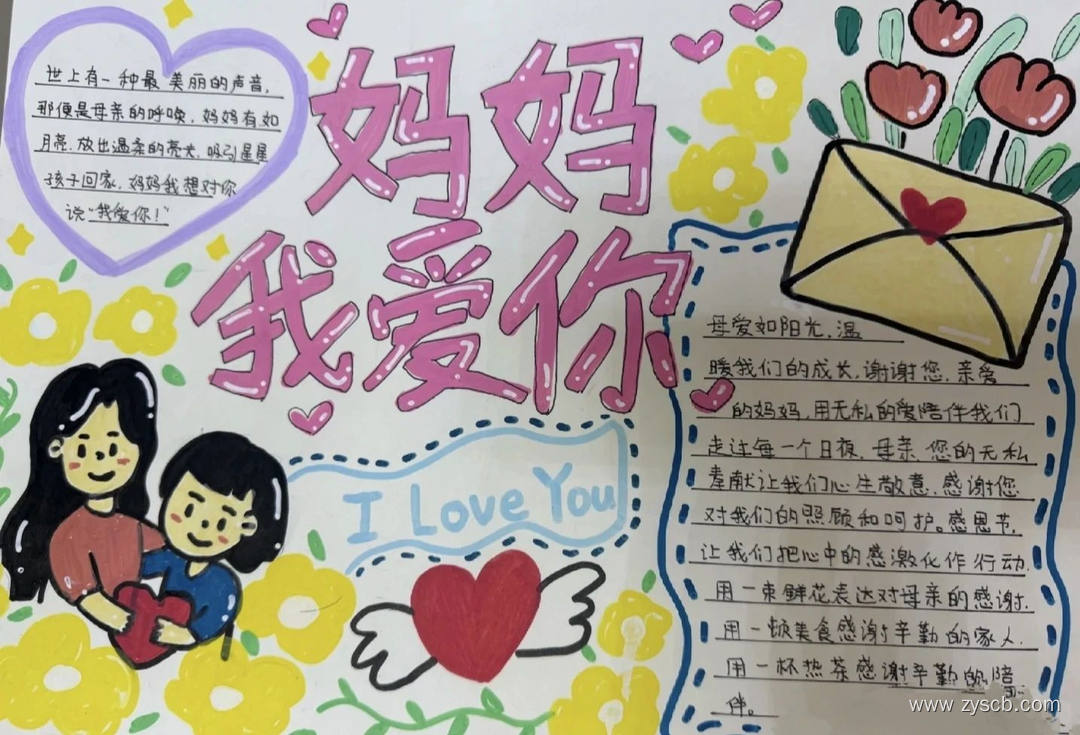 世上有一种最美丽的声音，
那便是母亲的呼唤，妈妈有如
月亮，放出温柔的亮光，吸引星星
孩子回家，妈妈我想对你
说“我爱你！”
妈妈
我爱你
I Love You
母爱如阳光，温
暖我们的成长，谢谢您，亲爱
的妈妈，用无私的爱陪伴我们
走过每一个日夜，母亲，您的无私
奉献让我们心生敬意，感谢您
对我们的照顾和呵护。感恩节，
让我们把心中的感激化作行动，
用一束鲜花表达对母亲的感谢，
用一顿美食感谢辛勤的家人，
用一杯热茶感谢辛勤的陪
伴。
www.zyscb.com